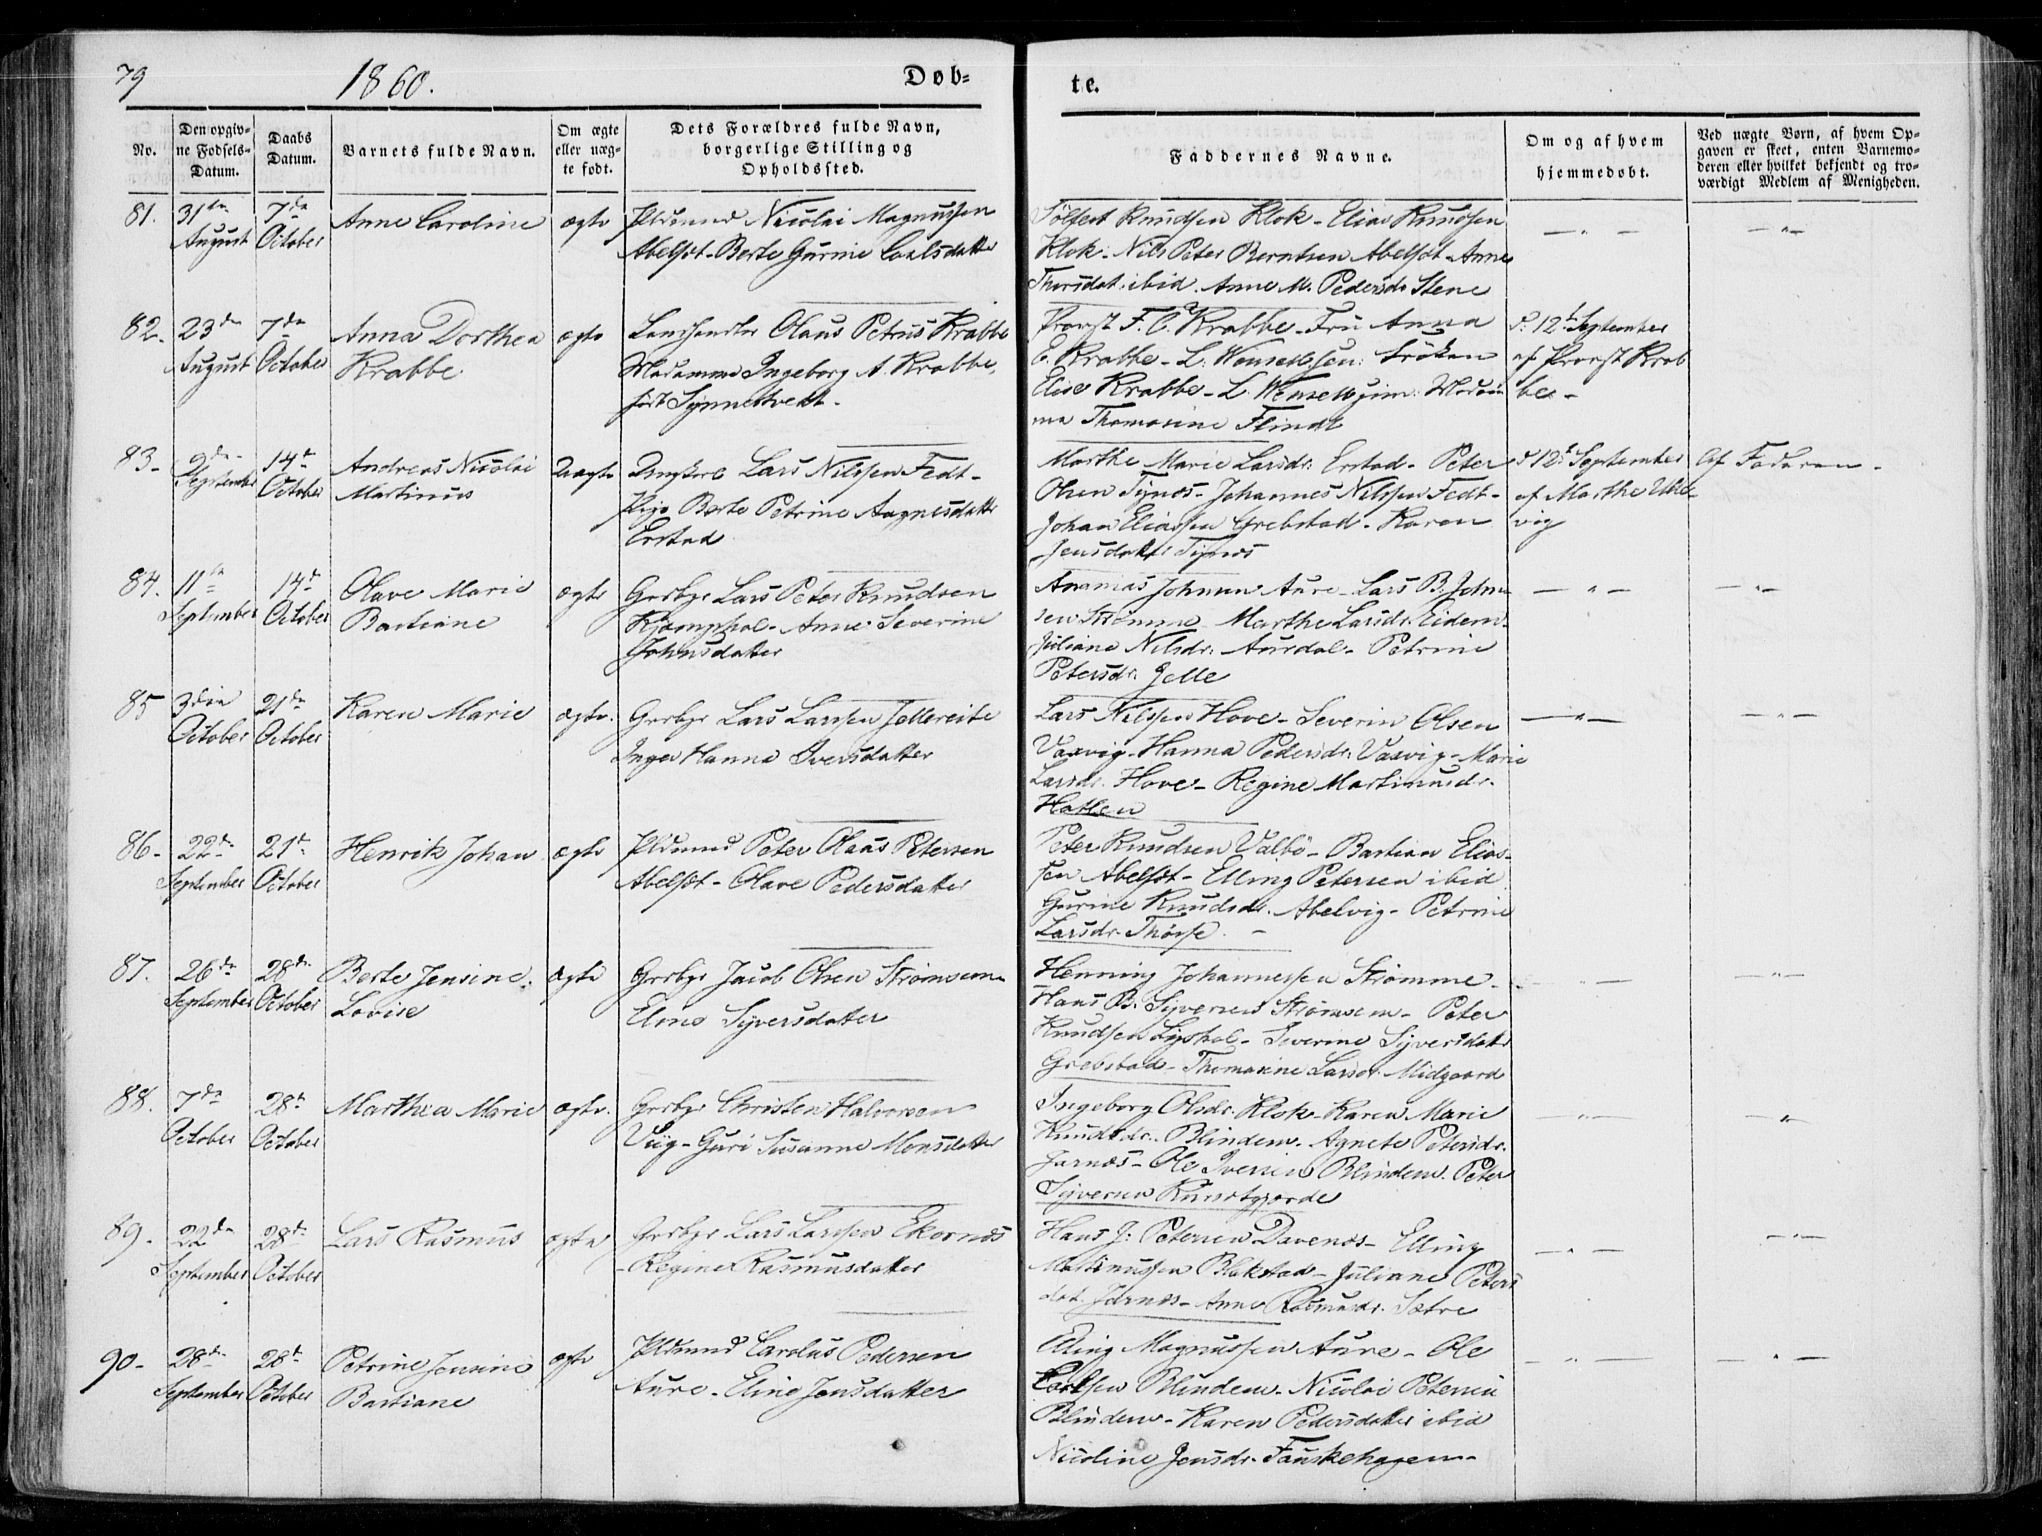 79 1860. Døb=
te.
No.
Den opgiv=
ne Fødsels=
Datum.
Daabs
Datum.
Barnets fulde Navn.
Om ægte
eller uæg=
te født.
Dets Forældres fulde Navn,
borgerlige Stilling og
Opholdssted.
Faddernes Navne.
Om og af hvem
hjemmedøbt.
Ved uægte Børn, af hvem Op=
gaven er skeet, enten Barnemo=
deren eller hvilket bekjendt og tro=
værdigt Medlem af Menigheden.
81. 31te August
7de October
Anne Caroline
ægte
Pldsmd Nicolai Magnussen
Abelsæt - Berte Gurine Carlsdatter
Knudsen Klok - Elias Knudsen
Klok - Nils Peter Berntsen Abelsæt - Anne
Thorsdat. ibid. Anne M. Pedersdr Stene
— " —
— " —
82. 23de August
7de October
Anna Dorthea
Krabbe
ægte
Landhandler Olaus Petrus Krabbe
Madamme Ingeborg A. Krabbe,
født Synnestvedt -
Provst F. C. Krabbe - Fru Anna
E. Krabbe - L. Frøken
Elise Krabbe - L. Madam-
ma Thomasine Flindt
d. 12t September
af Provst Krab
be -
83. 9de September
14de October
Andreas Nicolai
Martinus
Uægte
Ungkarl Lars Nilssen Fedt -
Pige Berte Petrine Aagnesdatter
Erstad
Marthe Marie Larsdr. Erstad - Peter
Olsen Tynæs - Johannes Nilssen Fedt -
Johan Eliassen Grebstad - Karen
Jensdatter Tynæs
d 12t September
af Marthe
vig
Af Faderen -
84. 11te September
14de October
Olave Marie
Bastiane
ægte
Grdbgr Lars Peter Knudsen
Kjæmphol - Anne Severine
Johnsdatter
Ananias Johnsen Aure - Lars B. John
sen Strømme - Marthe Larsdr. Eidem -
Juliane Nilsdr. Aurdal - Petrine
Petersdr. Jelle
— " —
— " —
85 3die October
21de October
Karen Marie
ægte.
Grdbgr Lars Larssen Jellereite
Inger Hanna Iversdatter
Lars Nilssen Hove - Severin Olsen
Vaxvig - Hanna Pedersdr. Vaxvig - Marie
Larsdr. Hove - Regine Martinusdr.
Hatlen
— " —
— " —
86 - 22de September
21de October
Henrik Johan
ægte
Pldsmd Peter Olaus Petersen
Abelsæt - Olave Pedersdatter
Peter Knudsen Valbø - Bastian Elias-
sen Abelsæt - Elling Petersen ibid
Gurine Knudsdr. Abelvig - Petrine
Larsdr. Thørse. -
87. 26de September
28de October
Berte Jensine
Lovise
ægte
Grdbgr Jacob Olsen Strømsem
Eline Syversdatter
Henning Johannessen Strømme -
Hans B. Syversen Strømsem - Peter
Knudsen Lyshol - Severine Syversdatr
Grebstad - Thomasine Larsdr. Midgaard
— " —
88. 7de October
28t October
Marthea Marie
ægte.
Grdbgr Christen Halvorsen
Viig - Guri Susanne Monsdatter
Ingeborg Olsdr. Klok - Karen Marie
Knudsdr. Blindem - Agnete Petersdr.
Jarnæs - Ole Iversen Blindem. Peter
Syversen
— " —
"
89. 22de September
28de October
Lars Rasmus
ægte
Grdbgr Lars Larssen Ekornæs
- Regine Rasmusdatter
Hans J: Petersen Davenæs - Elling
Martinussen Blakstad - Juliane Peters
dat. Jarnæs - Anne Rasmusdr. Sætre
— " —
— " —
90 - 28de September
28t October
Petrine Jensine
Bastiane
ægte
Pldsmd Carolus Pedersen
Aure - Eline Jensdatter
Elling Magnussen Aure - Ole
Carlsen Blindem - Nicolai Petersen
Blindem - Karen Pedersdatter ibid
Nicoline Jensdr. Fauskehagen -
— " —
— " —